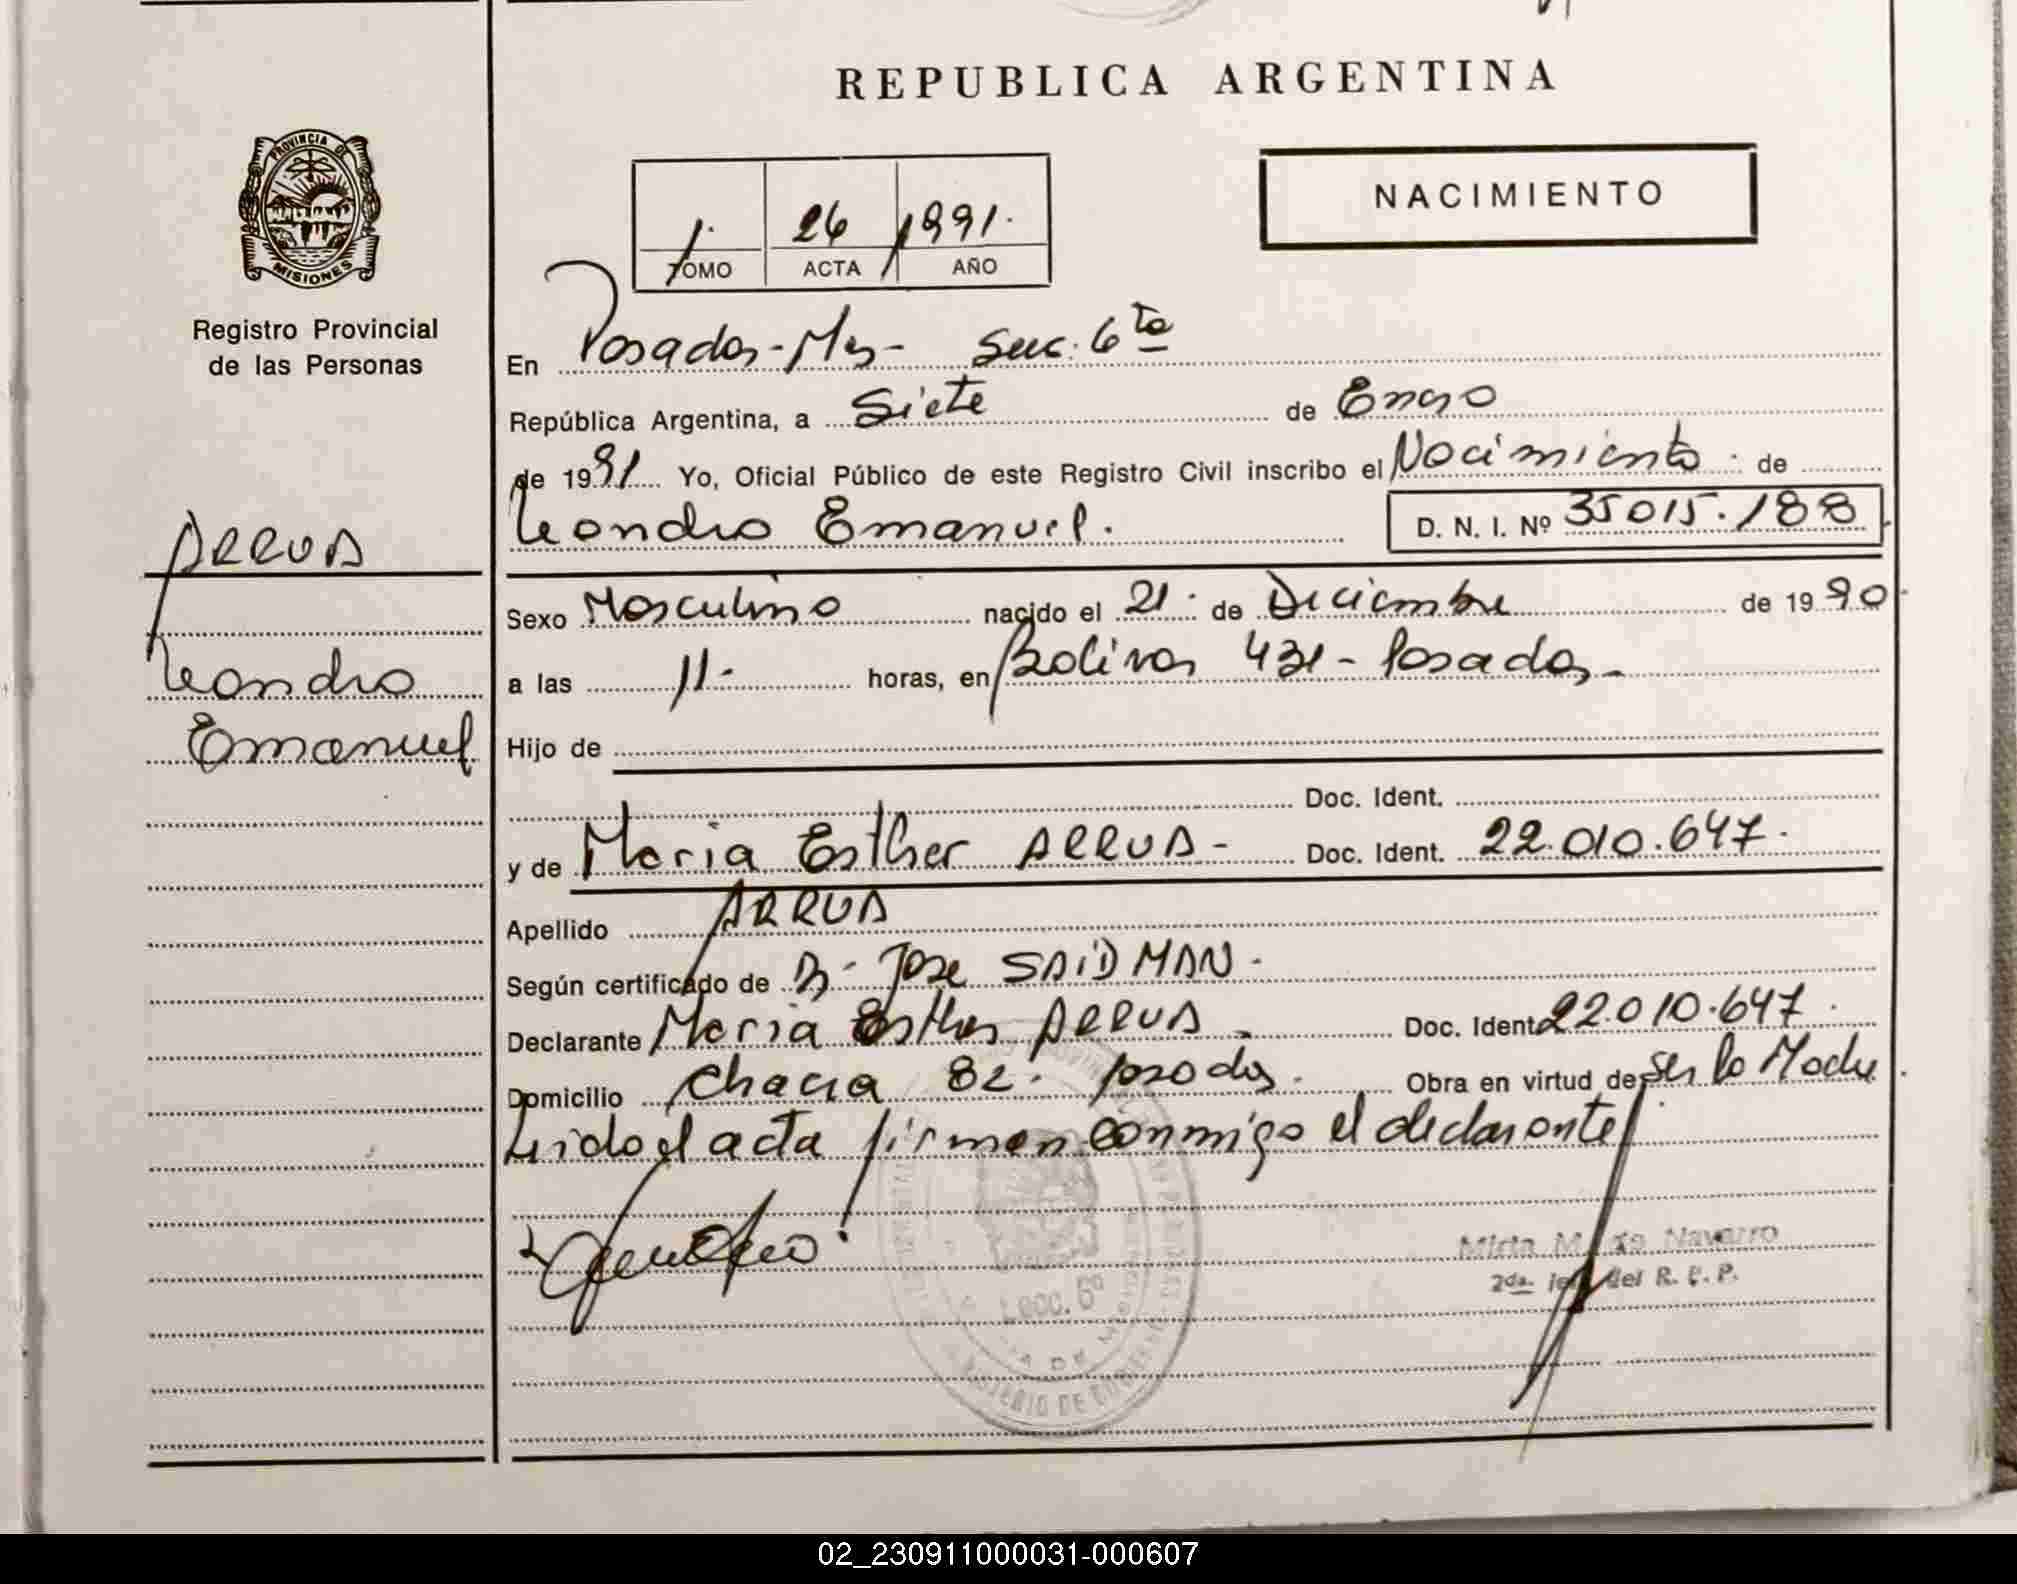 REPUBLICA ARGENTINA
NACIMIENTO
1. 26 1991.
TOMO ACTA AÑO
PROVINCIA DE
MISIONES
Registro Provincial
de las Personas
ARRUA
Leandro
Emanuel
En Posadas - Mns - Secc. 6ta
República Argentina, a Siete de Enero
de 1991 Yo, Oficial Público de este Registro Civil inscribo el Nacimiento de
Leandro Emanuel. D. N. I. Nº 35015.188
Sexo Masculino nacido el 21 de Diciembre de 1990
a las 11. horas, en Bolivar 431 - Posadas -
Hijo de
Doc. Ident.
y de Maria Esther ARRUA - Doc. Ident. 22.010.647.
Apellido ARRUA
Según certificado de Dr. Jose SAIDMAN.
Declarante Maria Esther ARRUA. Doc. Ident. 22.010.647.
Domicilio Chacra 82. Posadas. Obra en virtud de ser la Madre
Leido el acta firman conmigo el declarante
Mirta de Navarro
2da. Jefe del R. C. P.
Secc. 6º
02_230911000031-000607